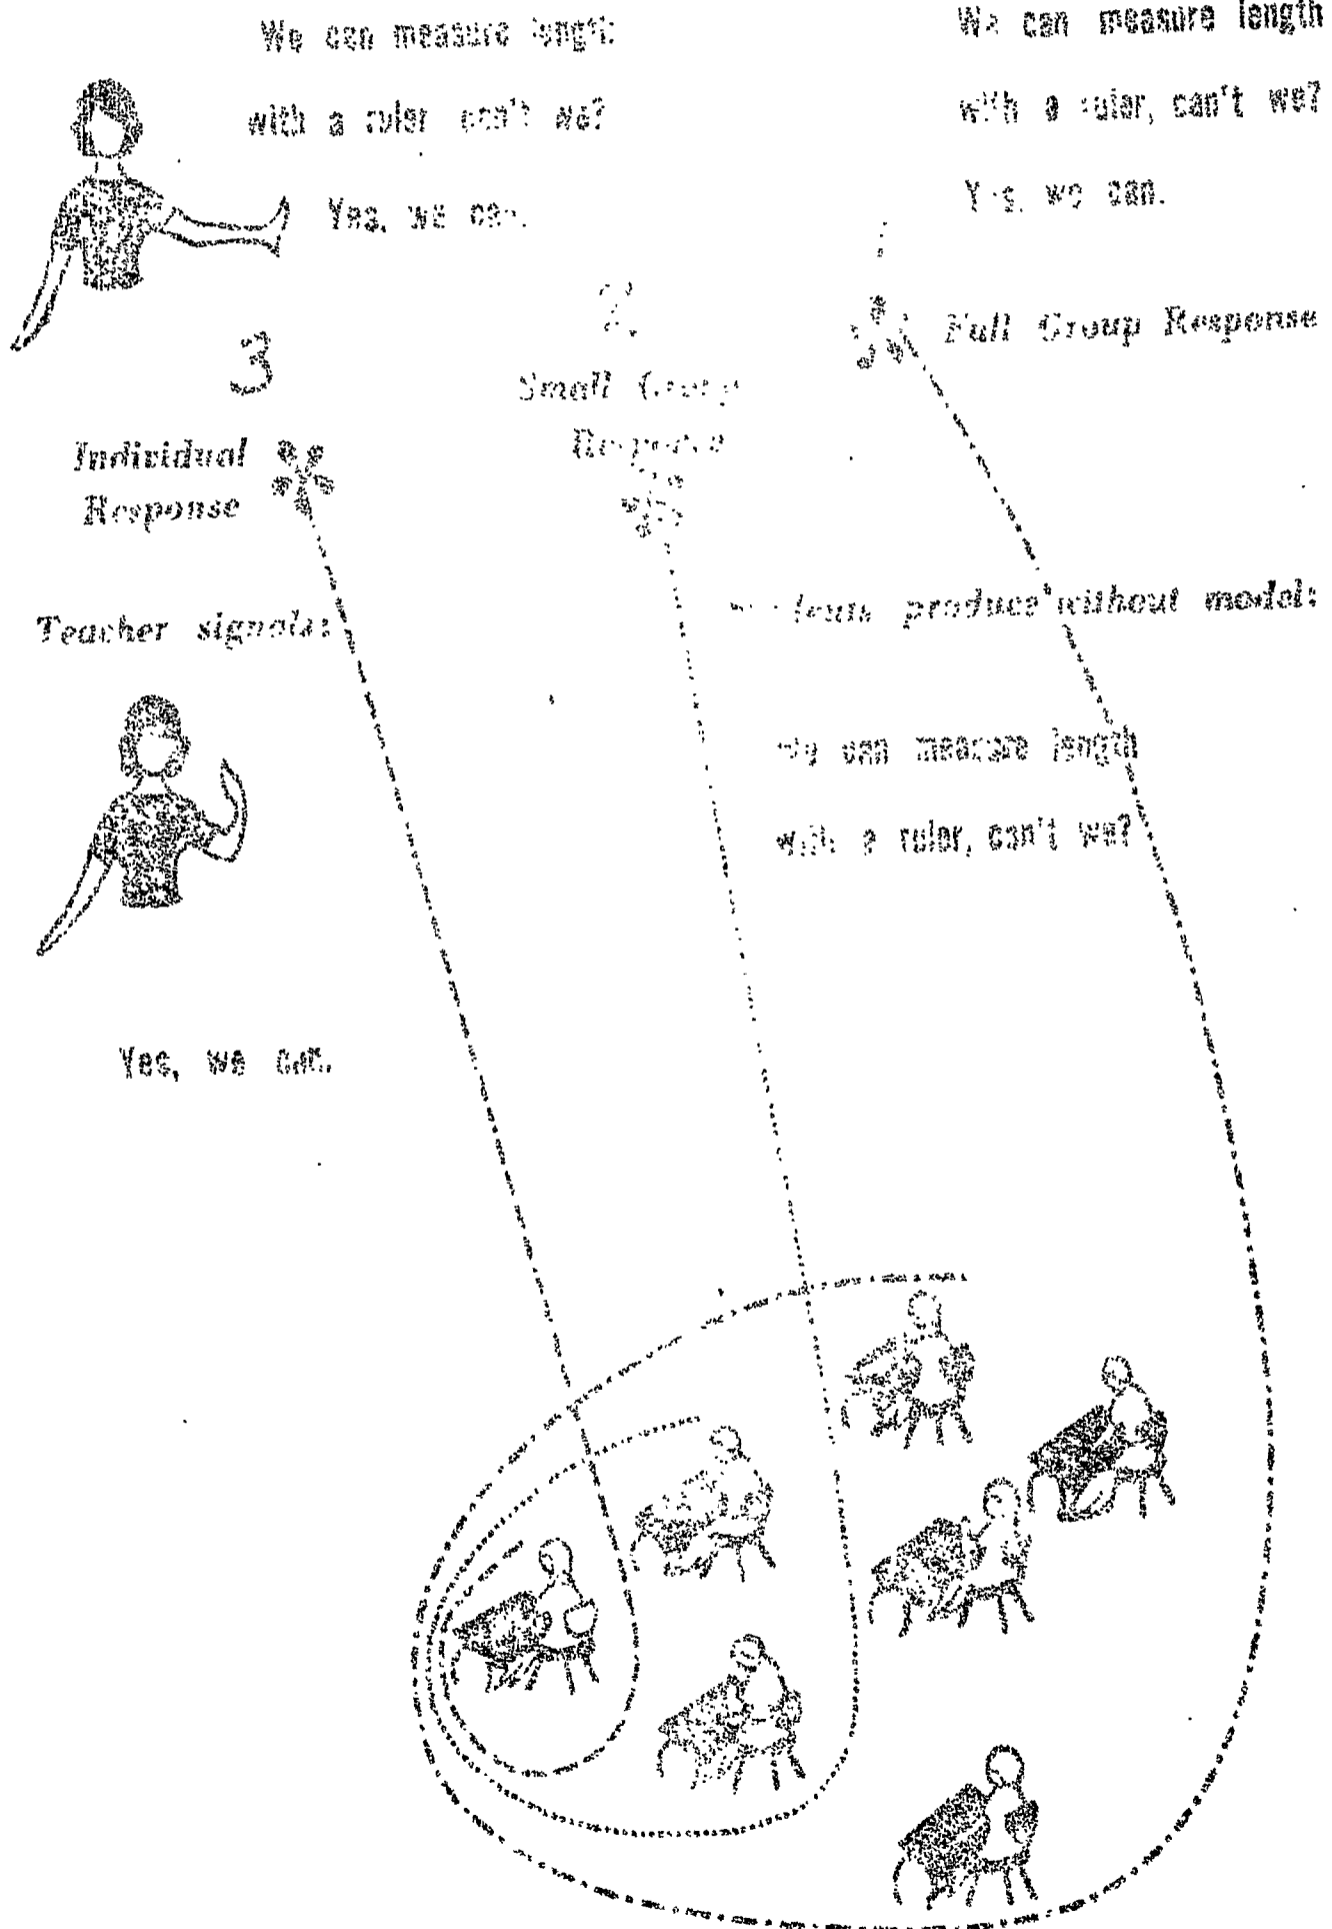 We can measure length
with a ruler can't we?
Yes, we can.
We can measure length
with a ruler, can't we?
Yes, we can.
3
Individual
Response
2.
Small Group
Response
Full Group Response
Teacher signals:
produce without model:
We can measure length
with a ruler, can't we?
Yes, we can.